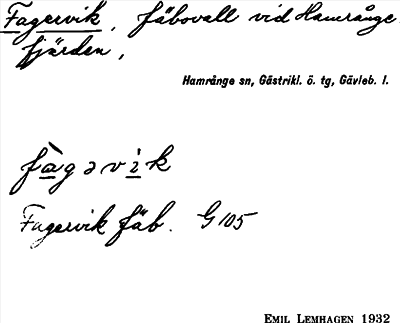 Fagervik, fäbovall vid Hamrånge-
fjärden,
Hamrånge sn, Gästrikl. ö. tg, Gävleb. l.
fàgəvìk
Fagervik fäb. G 105
EMIL LEMHAGEN 1932